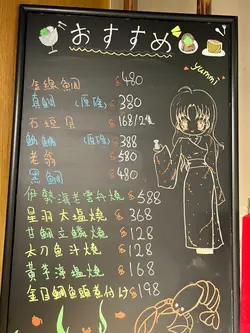 おすすめ
yummi
金線鯛 $480
真鯛 （原隻） $380
石垣貝 $168/2隻
（原隻） $388
老翁 $580
黑鯛 $480
伊勢海老雲丹燒 $588
星羽太塩燒 $368
甘鯛立鱗燒 $128
太刀魚汁燒 $128
塩燒 $168
金目鯛魚頭煮付け $198